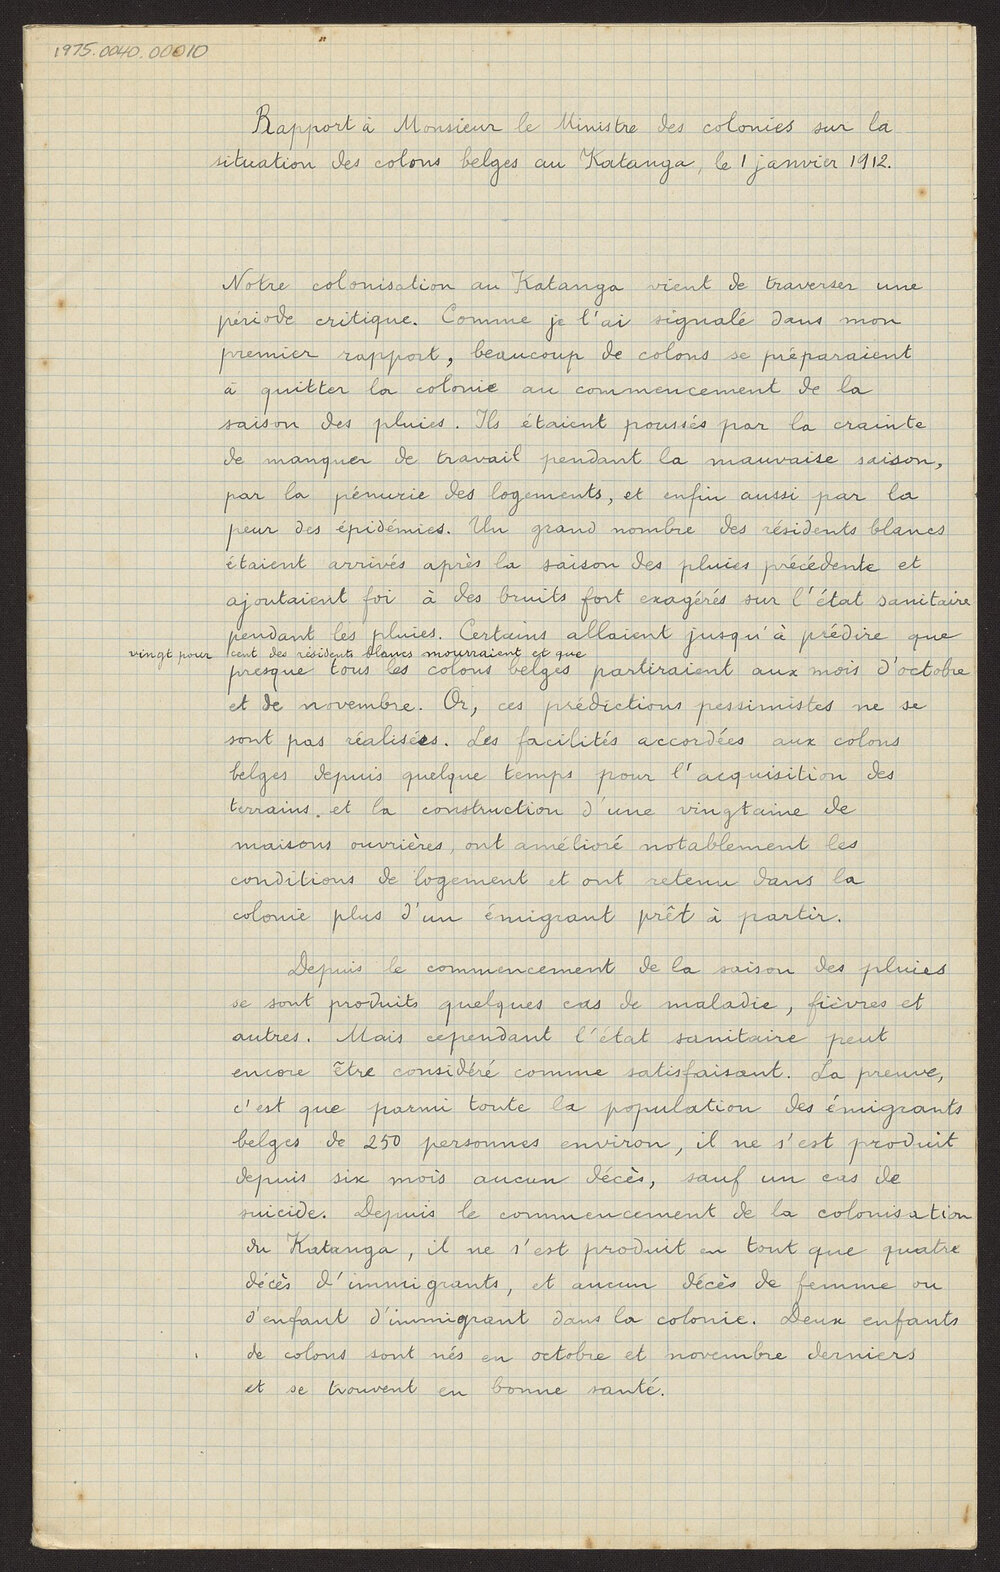 1975.0040.00010
Rapport à Monsieur le Ministre des colonies sur la
situation des colons belges au Katanga, le 1 janvier 1912.
Notre colonisation au Katanga vient de traverser une
période critique. Comme je l'ai signalé dans mon
premier rapport, beaucoup de colons se préparaient
à quitter la colonie au commencement de la
saison des pluies. Ils étaient poussés par la crainte
de manquer de travail pendant la mauvaise saison,
par la pénurie des logements, et enfin aussi par la
peur des épidémies. Un grand nombre des résidents blancs
étaient arrivés après la saison des pluies précédente et
ajoutaient foi à des bruits fort exagérés sur l'état sanitaire
pendant les pluies. Certains allaient jusqu'à prédire que
vingt pour cent des résidents blancs mourraient et que
presque tous les colons belges partiraient aux mois d'octobre
et de novembre. Or, ces prédictions pessimistes ne se
sont pas réalisées. Les facilités accordées aux colons
belges depuis quelque temps pour l'acquisition des
terrains, et la construction d'une vingtaine de
maisons ouvrières, ont amélioré notablement les
conditions de logement et ont retenu dans la
colonie plus d'un émigrant prêt à partir.
Depuis le commencement de la saison des pluies
se sont produits quelques cas de maladie, fièvres et
autres. Mais cependant l'état sanitaire peut
encore être considéré comme satisfaisant. La preuve,
c'est que parmi toute la population des émigrants
belges de 250 personnes environ, il ne s'est produit
depuis six mois aucun décès, sauf un cas de
suicide. Depuis le commencement de la colonisation
du Katanga, il ne s'est produit en tout que quatre
décès d'immigrants, et aucun décès de femme ou
d'enfant d'immigrant dans la colonie. Deux enfants
de colons sont nés en octobre et novembre derniers
et se trouvent en bonne santé.